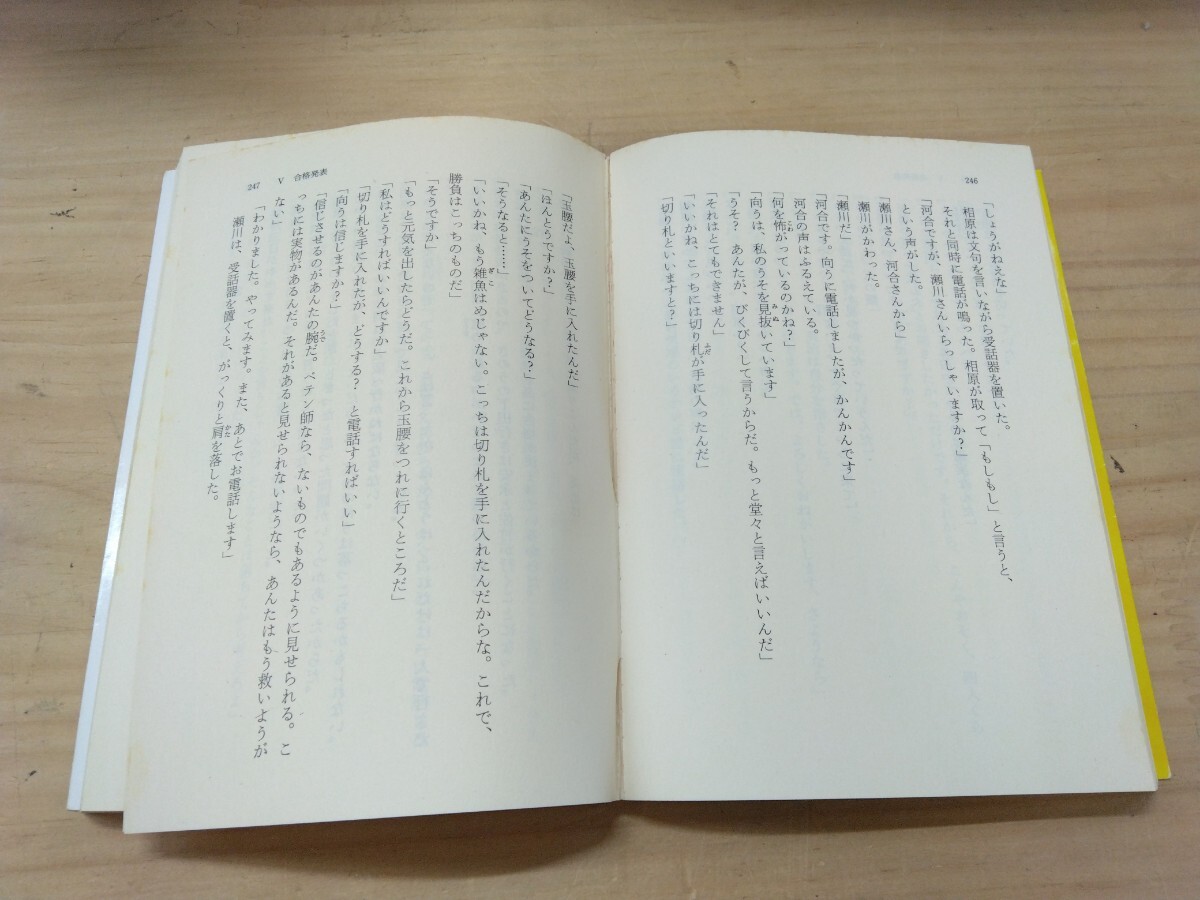 246
「しょうがねえな」
相原は文句を言いながら受話器を置いた。
それと同時に電話が鳴った。相原が取って「もしもし」と言うと、
「河合ですが、瀬川さんいらっしゃいますか?」
という声がした。
「瀬川さん、河合さんから」
瀬川がかわった。
「瀬川だ」
「河合です。向うに電話しましたが、かんかんです」
河合の声はふるえている。
「何を怖がっているのかね?」
「向うは、私のうそを見抜いています」
「うそ? あんたが、びくびくして言うからだ。もっと堂々と言えばいいんだ」
「それはとてもできません」
「いいかね、こっちには切り札が手に入ったんだ」
「切り札といいますと?」
「玉腰だよ、玉腰を手に入れたんだ」
「ほんとうですか?」
「あんたにうそをついてどうなる?」
「そうなると……」
「いいかね、もう雑魚はめじゃない。こっちは切り札を手に入れたんだからな。これで、
勝負はこっちのものだ」
「そうですか」
「もっと元気を出したらどうだ。これから玉腰をつれに行くところだ」
「私はどうすればいいんですか」
「切り札を手に入れたが、どうする? と電話すればいい」
「向うは信じますか?」
「信じさせるのがあんたの腕だ。ペテン師なら、ないものでもあるように見せられる。こ
っちには実物があるんだ。それがあると見せられないようなら、あんたはもう救いようが
ない」
「わかりました。やってみます。また、あとでお電話します」
瀬川は、受話器を置くと、がっくりと肩を落した。
247 V 合格発表